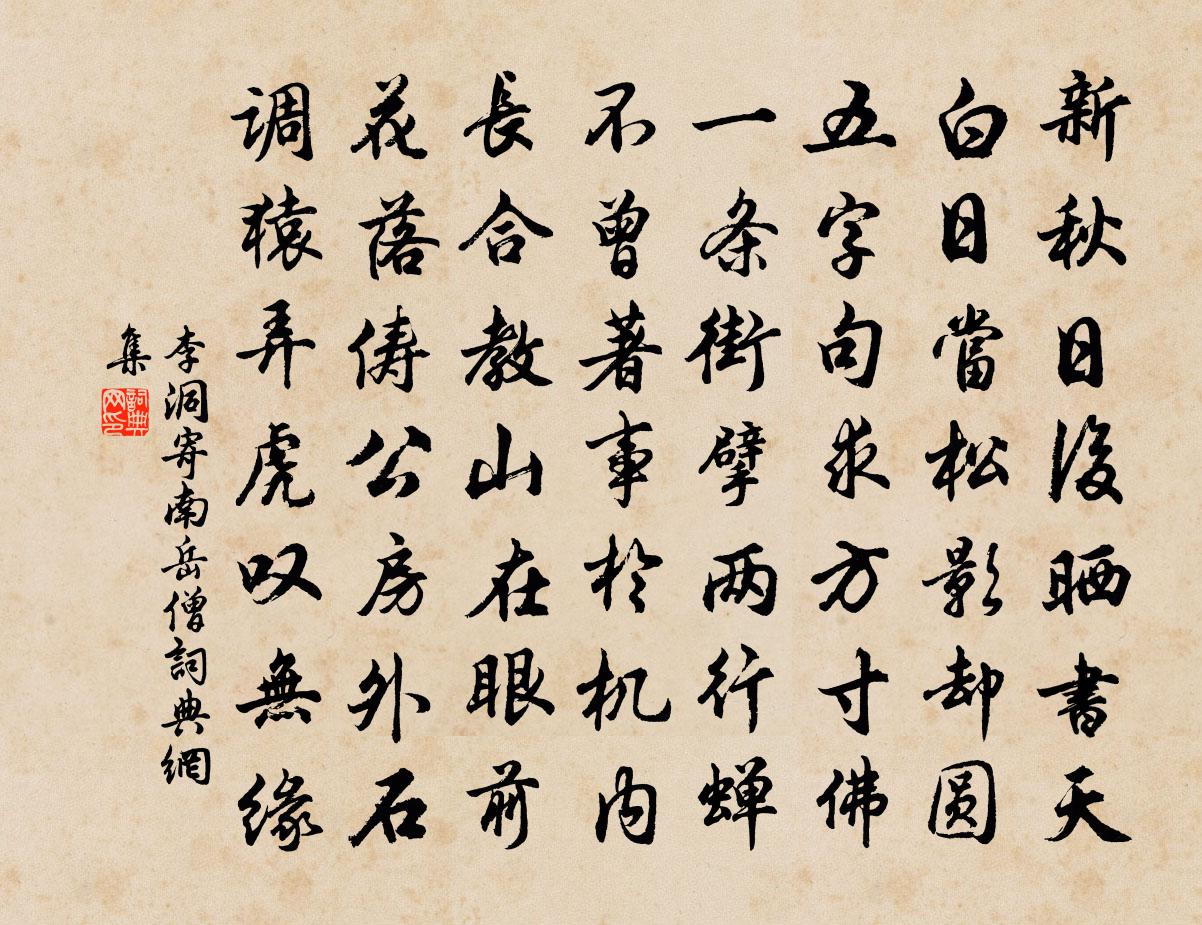 新秋日後晒書天
白日當松影却圆
五字句求方寸佛
一条街擘两行蝉
不曾著事於机内
長合教山在眼前
花落俦公房外石
调猿弄虎叹無緣
李洞寄南岳僧詞典網
集
詞典网印